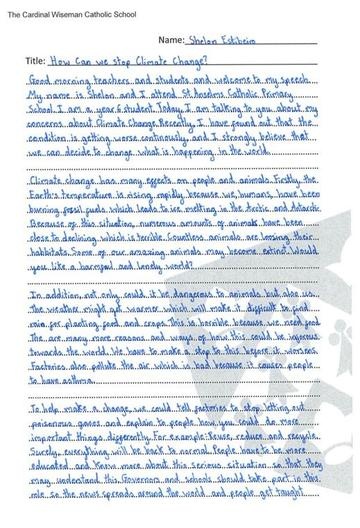 The Cardinal Wiseman Catholic School
Name: Shelon Estibeiro
Title: How Can we stop Climate Change?
Good morning teachers and students and welcome to my speech.
My name is Shelon and I attend St Anselms Catholic Primary
School. I am a year 6 student. Today, I am talking to you about my
concerns about Climate Change. Recently, I have found out that the
condition is getting worse continously, and I strongly believe that
we can decide to change what is happening in the world.
Climate change has many effects on people and animals. Firstly, the
Earth's temperature is rising rapidly because we, humans, have been
burning fossil fuels which leads to ice melting in the Arctic and Antarctic.
Because of this situation, numerous amounts of animals have been
close to declining which is terrible. Countless animals are loosing their
habbitats. Some of our amazing animals may become extinct. Would
you like a harmful and lonely world?
In addition, not only could it be dangerous to animals but also us.
The weather might get warmer which will make it difficult to find
rain for planting food and crops. This is horrible because we need food.
The are many more reasons and ways of how this could be injorous
towards the world. We have to make a stop to this before it worsens.
Factories also pollute the air which is bad because it causes people
to have asthma.
To help make a change, we could tell factories to stop letting out
poisonous gases and explain to people how you could do more
important things differently. For example: Reuse, reduce and recycle.
Surely, everything will be back to normal. People have to be more
educated and know more about this serious situation so that they
may understand this. Governors and schools should take part in this
role so the news spreads around the world and people get taught